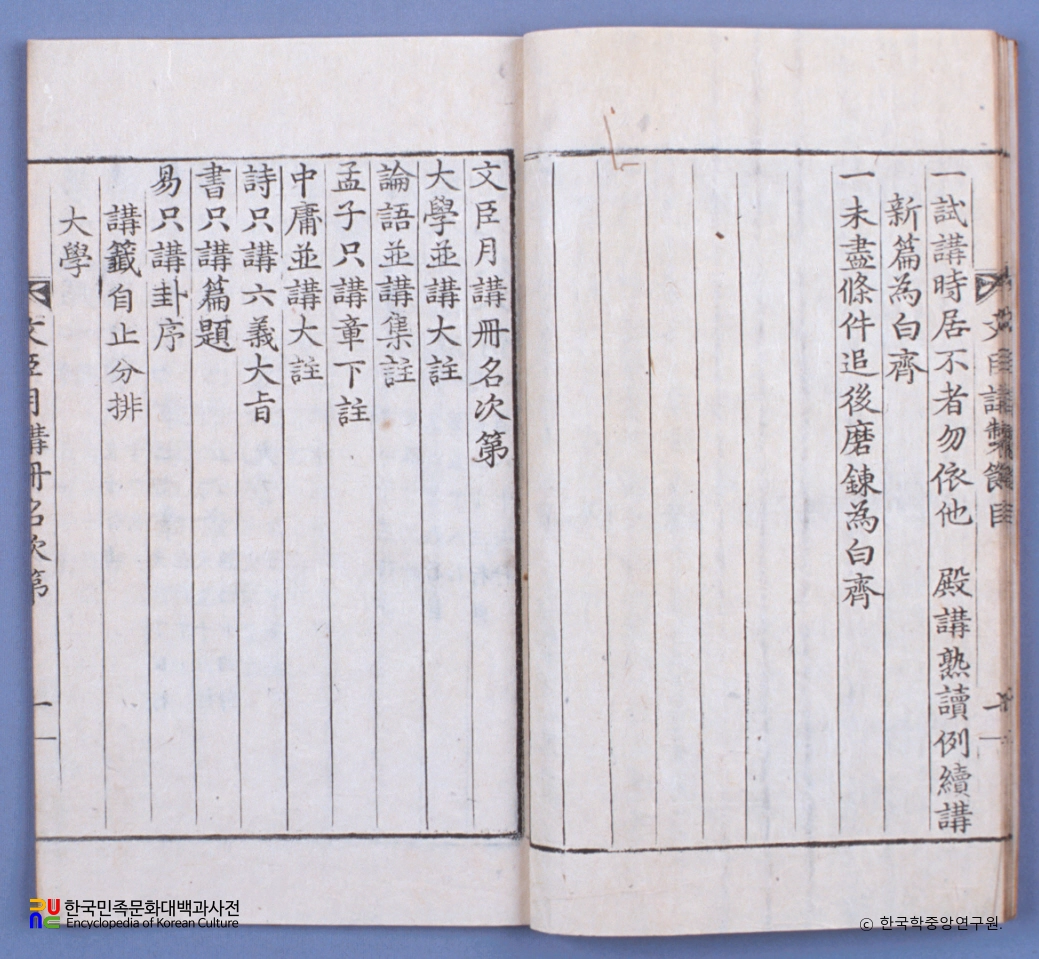 一試講時居不者勿依他 殿講熟讀例續講
新篇為白齊
一未盡條件追後磨鍊為白齊
文臣月講冊名次第
大學並講大註
論語並講集註
孟子只講章下註
中庸並講大註
詩只講六義大旨
書只講篇題
易只講卦序
講籤自止分排
大學
文臣月講冊名次第 一
한국민족문화대백과사전
Encyclopedia of Korean Culture
© 한국학중앙연구원.